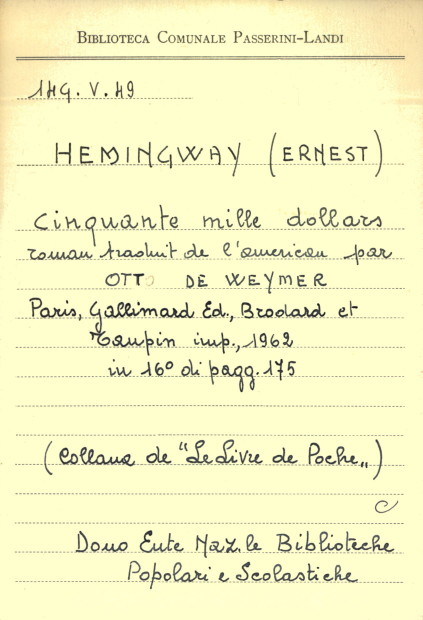 BIBLIOTECA COMUNALE PASSERINI-LANDI
149. V. 49
HEMINGWAY (ERNEST)
Cinquante mille dollars
roman traduit de l'american par
OTTO DE WEYMER
Paris, Gallimard Ed., Brodard et
Taupin imp., 1962
in 16° di pagg. 175
(Collana de "Le Livre de Poche„)
Dono Ente Naz.le Biblioteche
Popolari e Scolastiche